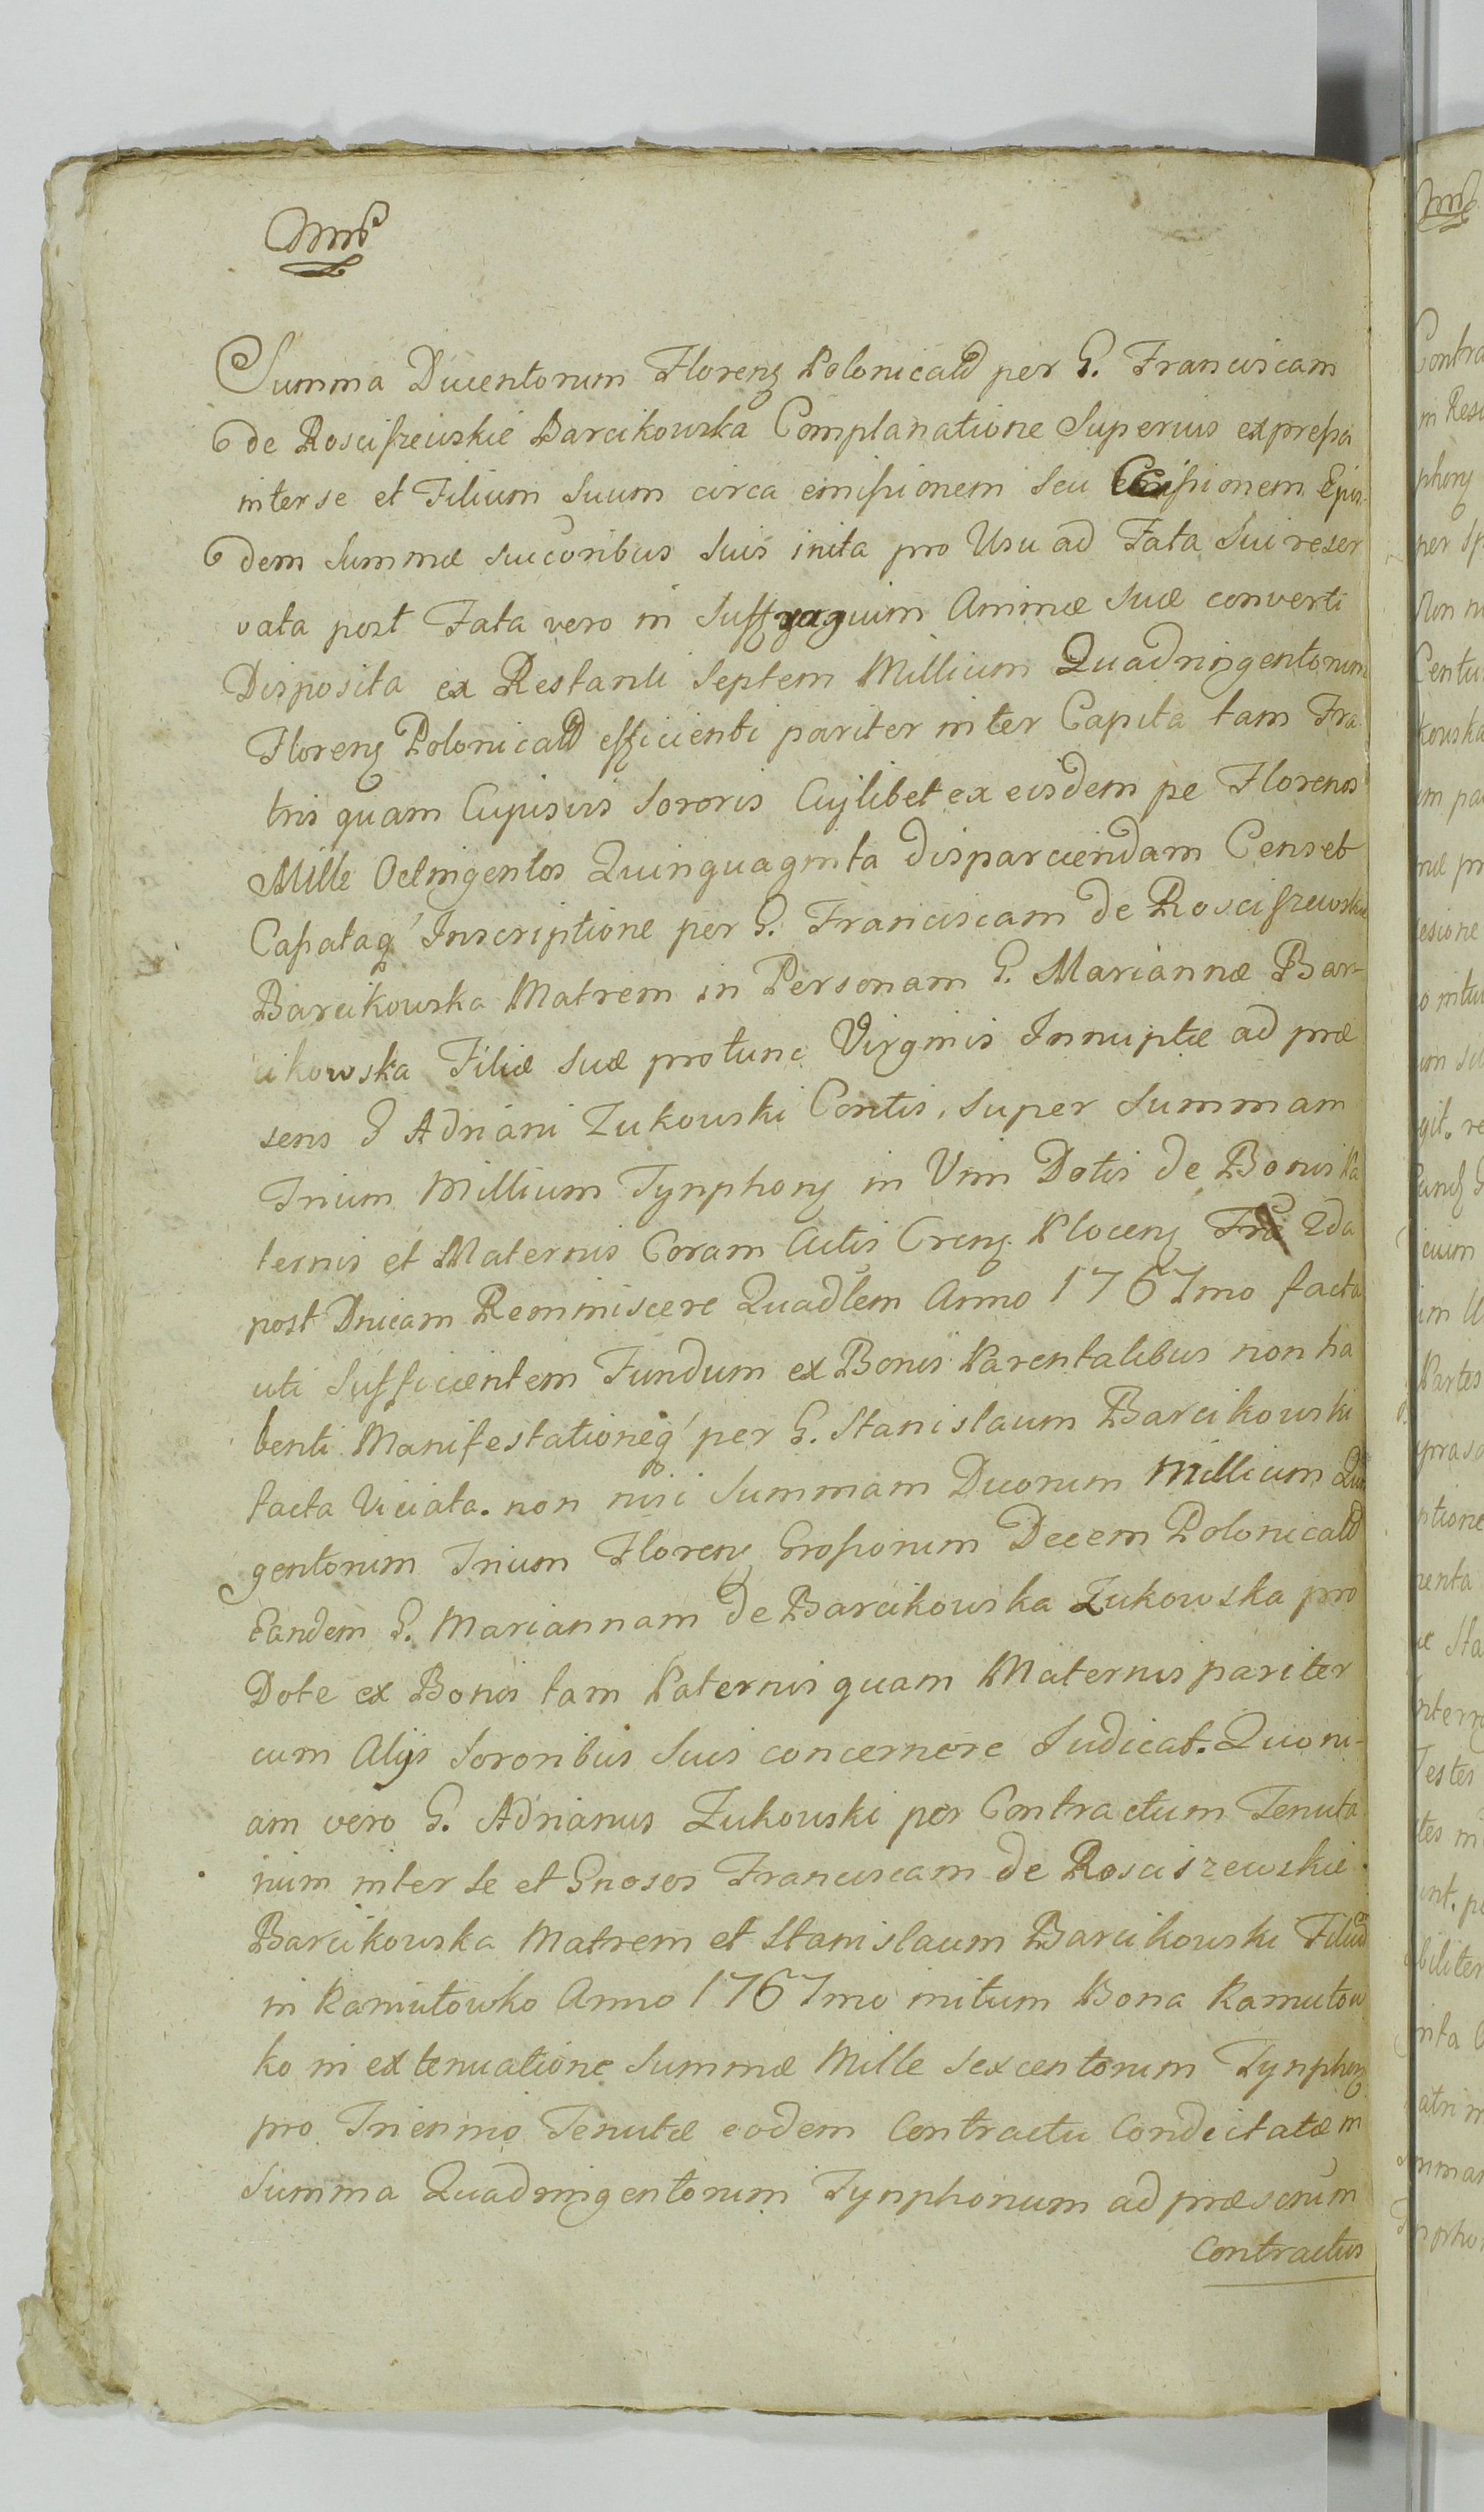 Summa Ducentorum Floreng Polonicald per G. Franciscam
de Roscisrewskie Barcikowska Complanatione Superius expressa
inter se et Filium Suum circa emissionem seu Cessionem Ejus-
dem Summæ succoribus suis inita pro Usu ad Fata Sui reser
vata post Fata vero in Suffragium Animæ Suæ converti
Disposita ex Restanti Septem Millium Quadringentorum
Floreng Polonicald efficienti pariter inter Capita tam Fra
tris quam Cujusvis Sororis Cuilibet ex eisdem pe Florenos
Mille Octingentos Quinquaginta disparciendam Censet
Cassataq Inscriptione per G. Franciscam de Roscisrewskie
Barcikowska Matrem in Personam G. Mariannæ Bar-
cikowska Filiæ Suæ protunc Virginis Innuptæ ad præ
sens G Adriani Zukowski Contis, super Summam
Trium Millium Tynphong in Vim Dotis de Bonis Pa
ternis et Maternis Coram Actis Creng Ploceng 2da
post Dnicam Reminiscere Quadlem Anno 1767mo facta
uti Sufficientem Fundum ex Bonis Parentalibus non ha
benti Manifestationeq per G. Stanislaum Barcikowski
facta Viciata. non nisi Summam Duorum Millium Quin
gentorum Trium Floreng Grossorum Decem Polonicald
Eandem G. Mariannam de Barcikowska Zukowska pro
Dote ex Bonis tam Paternis quam Maternis pariter
cum Alijs Sororibus Suis concernere Judicat. Quoni-
am vero G. Adrianus Zukowski per Contractum Tenuta
rium inter se et Gnosos Franciscam de Rosciszewskie
Barcikowska Matrem et Stanislaum Barcikowski Filiud
in Ramutowko Anno 1767mo initum Bona Ramutow
ko in extenuatione Summæ Mille Sexcentorum Tynphong
pro Triennio Tenutæ eodem Contractu Condictatæ in
Summa Quadringentorum Tynphonum ad præsens in
Contractus